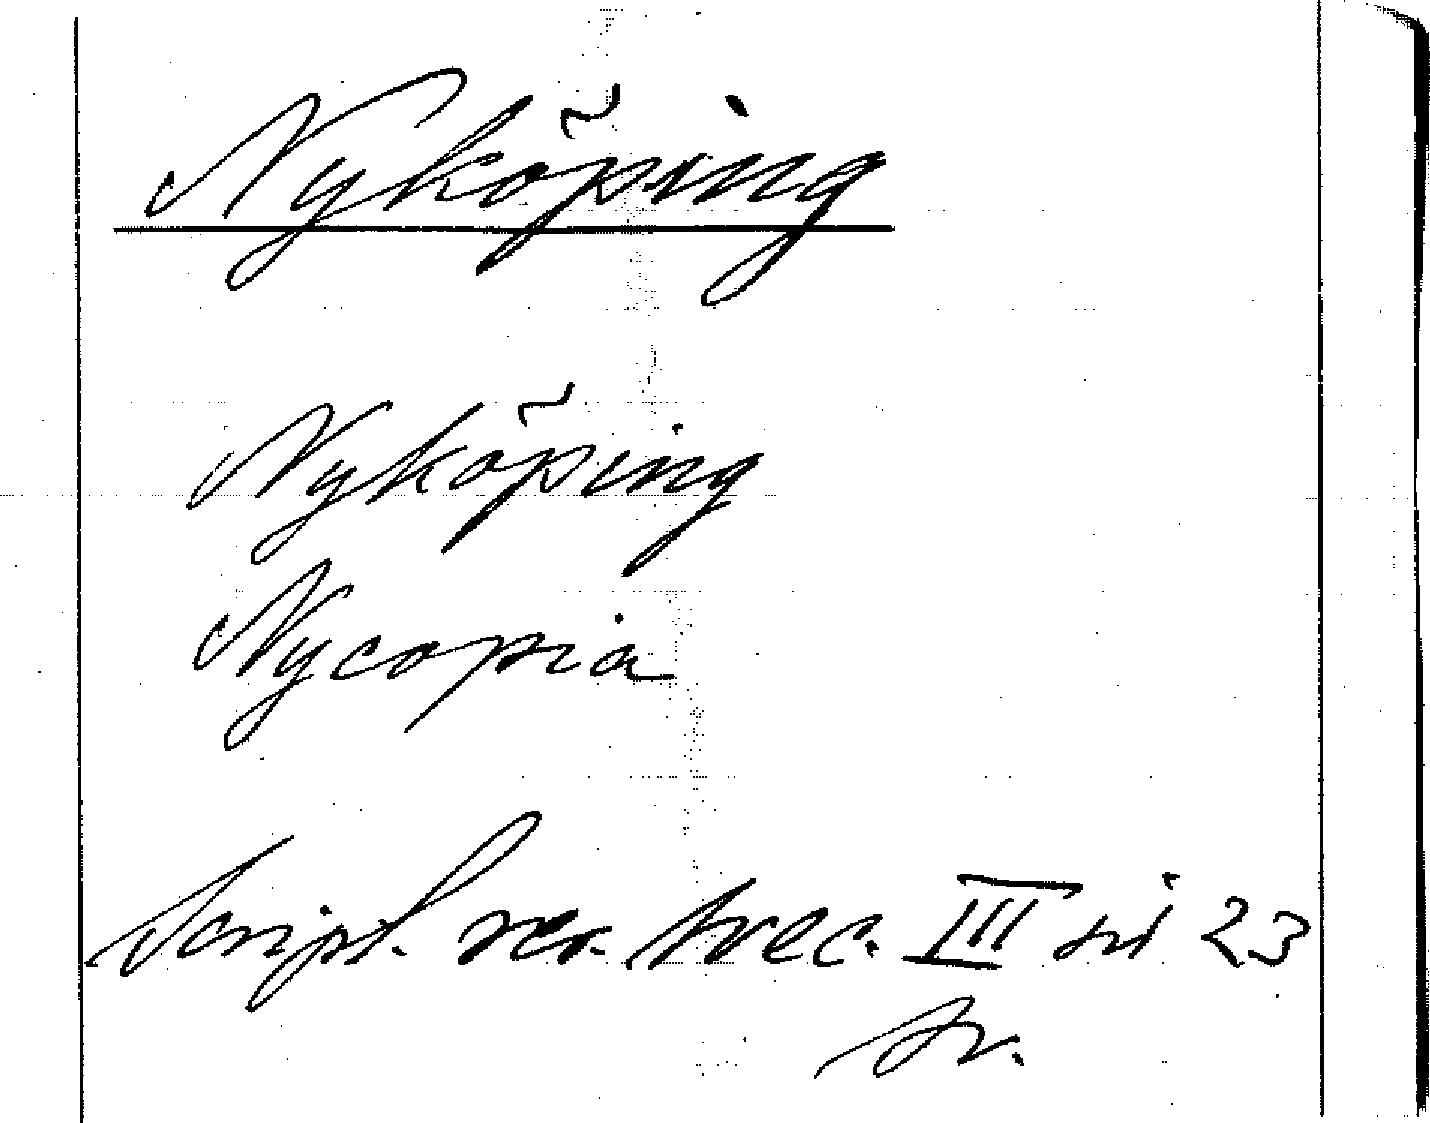 Nyköping
Nyköping
Nycopia
Script. rer. svec. III sid 23
sv.